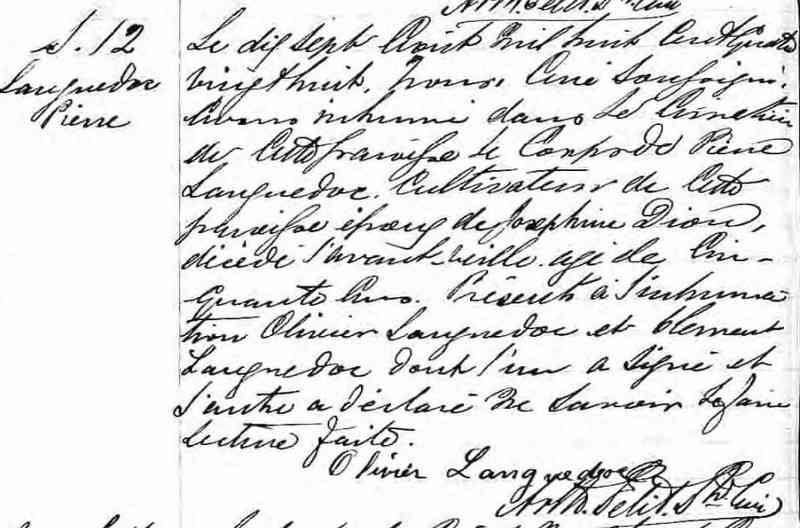 Arth. Petit. Ptre Curé
S. 12
Languedoc
Pierre
Le dix sept Août mil huit cent quatre
vingt huit, nous, Curé soussigné,
avons inhumé dans le Cimetière
de cette paroisse le Corps de Pierre
Languedoc, Cultivateur de cette
paroisse époux de Josephine Dion,
décédé l'avant-veille agé de Cin-
quante Ans. Présents à l'inhuma-
tion Olivier Languedoc et Clement
Languedoc dont l'un a signé et
l'autre a déclaré ne savoir le faire
lecture faite.
Olivier Languedoc
Arth. Petit. Ptre Curé